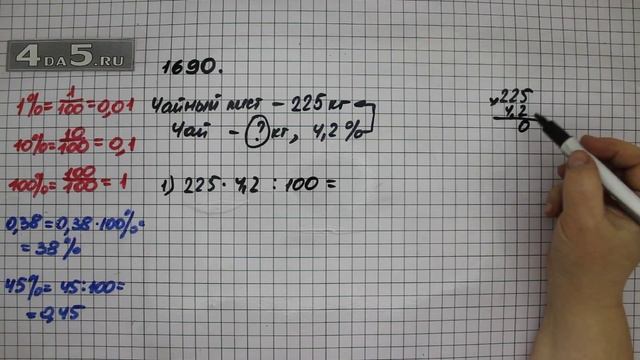 4DA5.RU
1690.
1% = 1/100 = 0,01
10% = 10/100 = 0,1
100% = 100/100 = 1
0,38 = 0,38·100% =
= 38%
45% = 45:100 =
= 0,45
Чайный лист – 225 кг
Чай – ? кг, 4,2%
1) 225 · 4,2 : 100 =
× 225
4,2
0